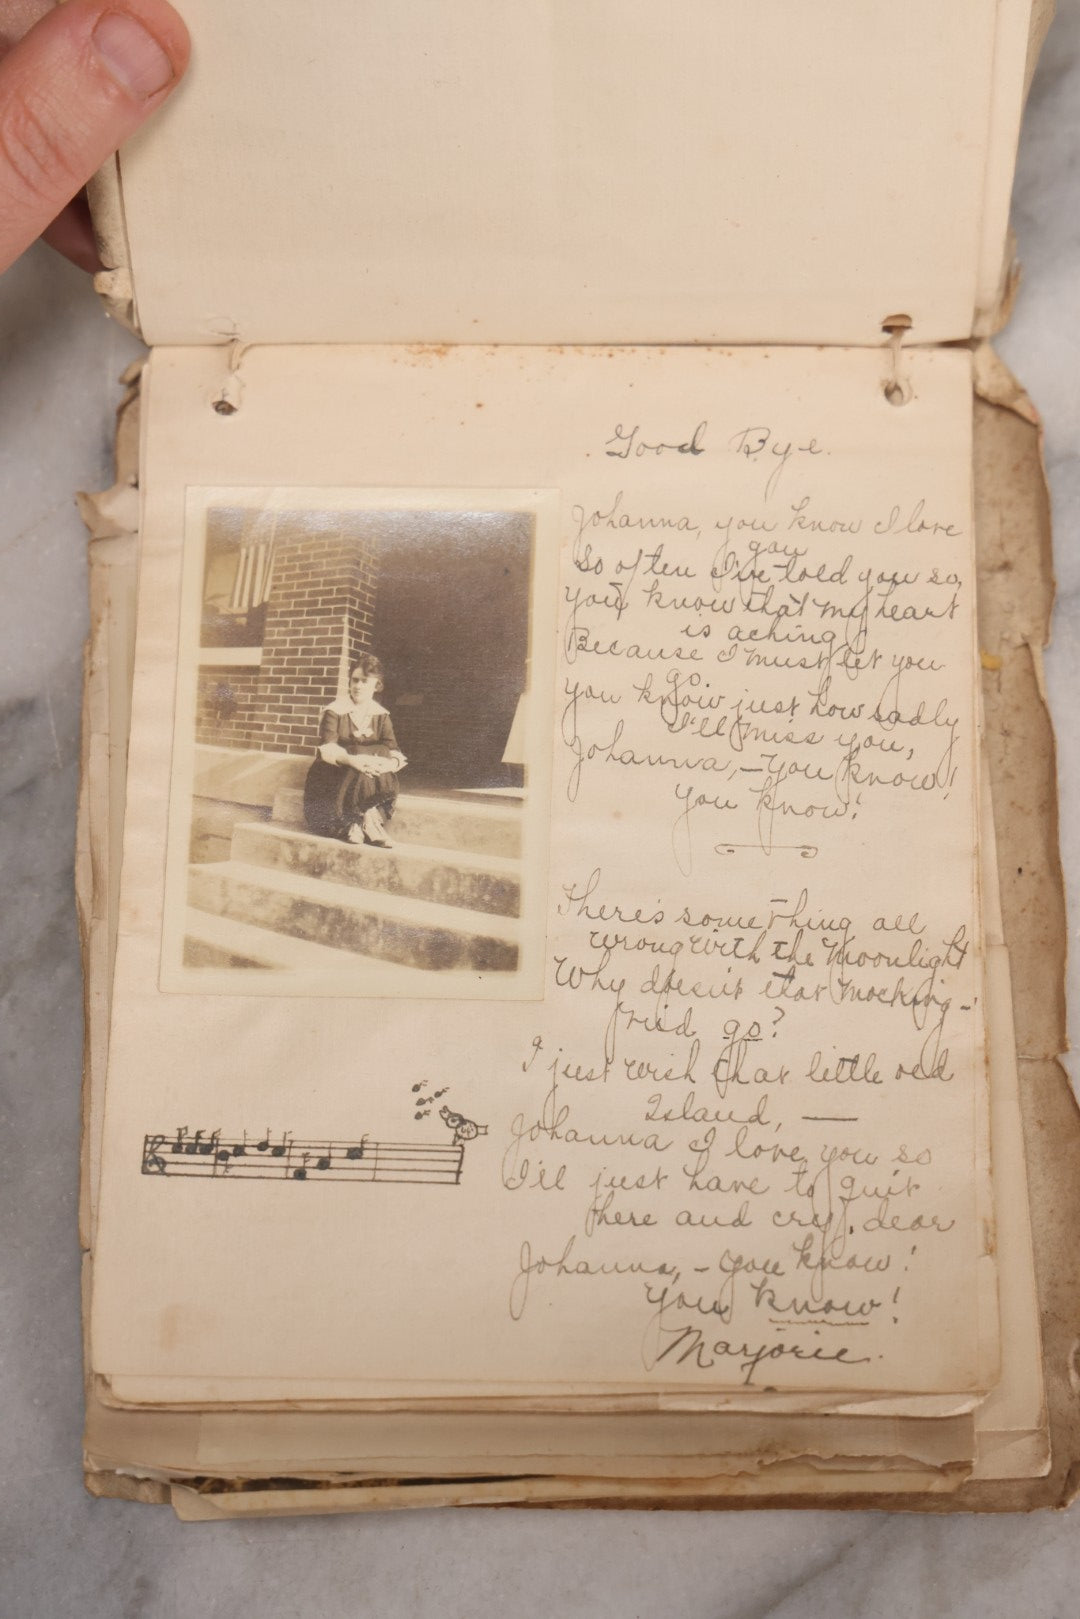 Good Bye.
Johanna, you know I love
you
So often I've told you so,
you know that my heart
is aching
Because I must let you
go
you know just how sadly
I'll miss you,
Johanna, — you know!
you know!
There's something all
wrong with the moonlight
Why doesn't that mocking-
go?
I just wish that little old
Island, —
Johanna I love you so
I'll just have to quit
here and cry, dear
Johanna, - you know!
you know!
Marjorie.